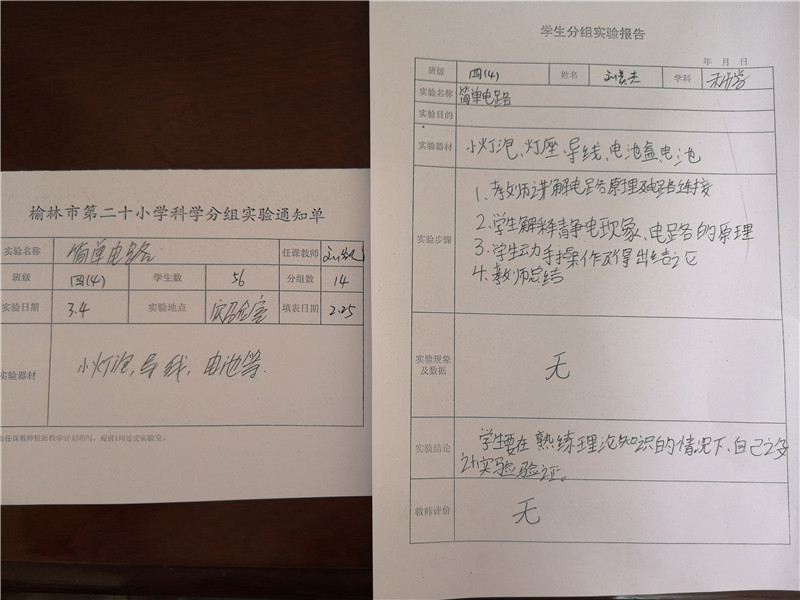 榆林市第二十小学科学分组实验通知单
实验名称 简单电路 任课教师
班级 四(4) 学生数 56 分组数 14
实验日期 3.4 实验地点 实验室 填表日期 2.25
实验器材 小灯泡,导线,电池等.
任课教师根据教学计划填写,提前1周送交实验室。
学生分组实验报告
年 月 日
班级 四(4) 姓名 学科 科学
实验名称 简单电路
实验目的
实验器材 小灯泡、灯座、导线、电池盒、电池
1、教师讲解电路原理及电路连接
2、学生解释静电现象、电路的原理
实验步骤
3、学生动手操作及得出结论
4、教师总结
实验现象
及数据
无
实验结论 学生要在熟练理论知识的情况下,自己
实验验证。
教师评价 无